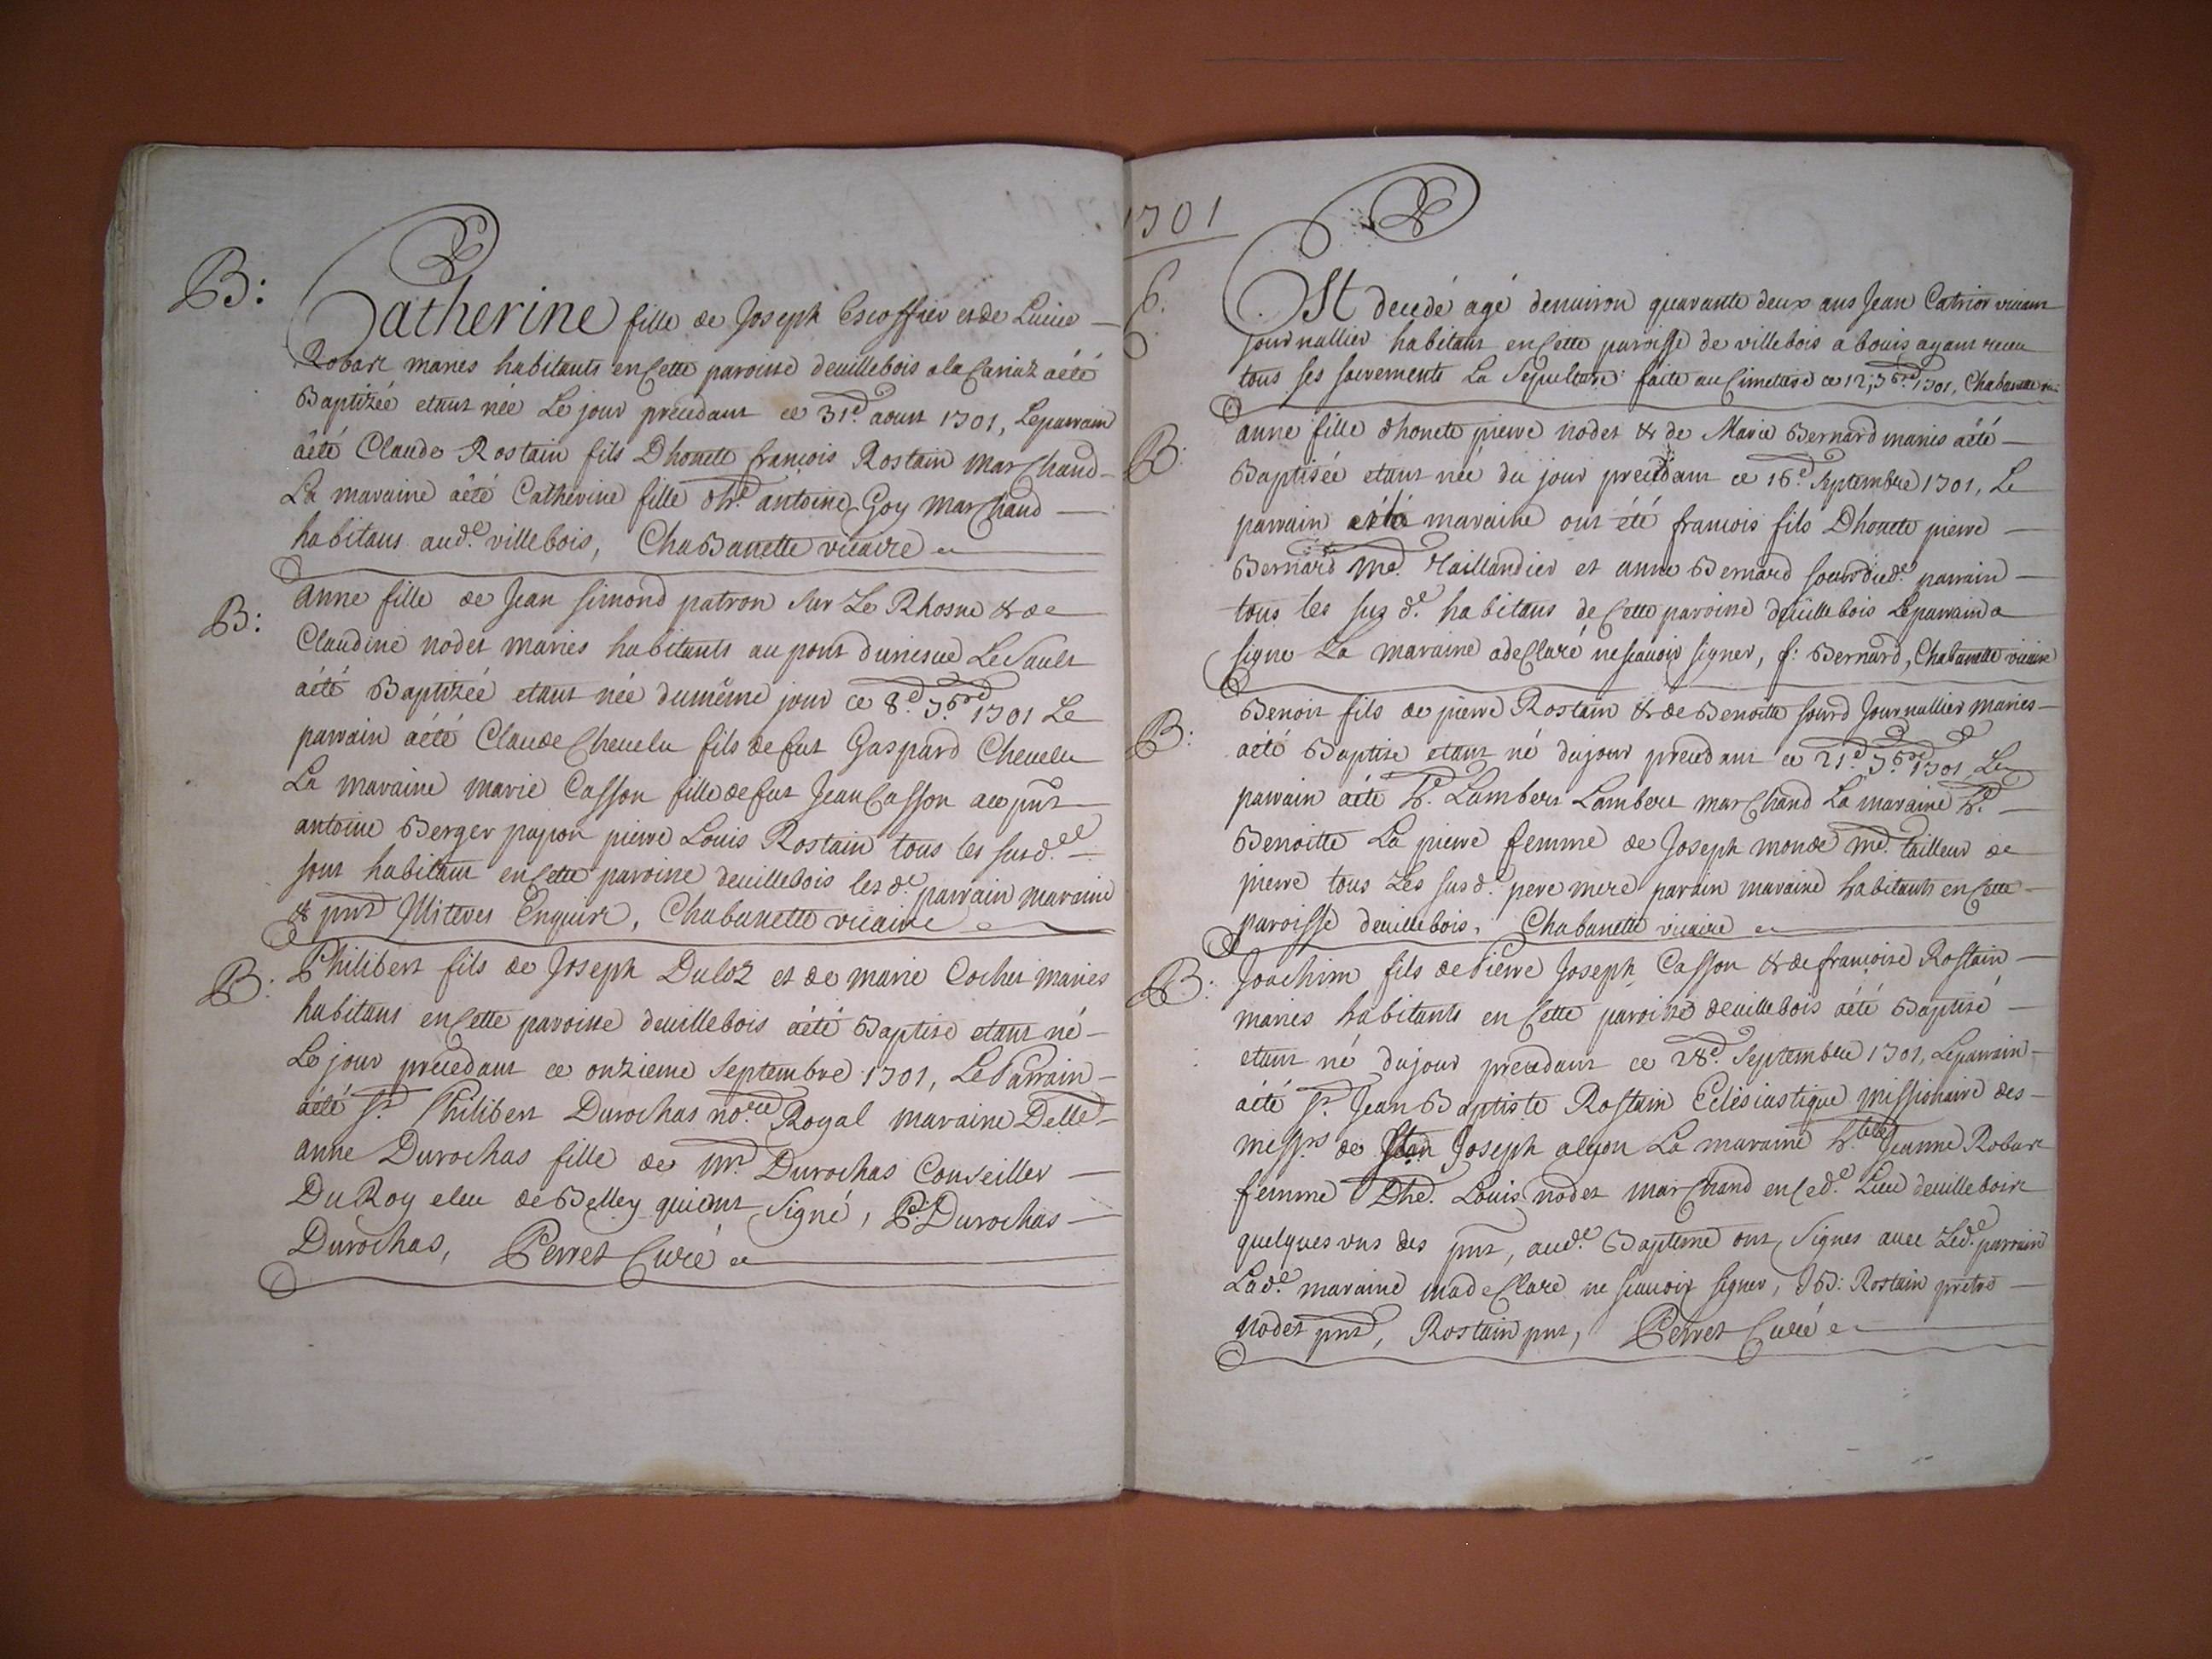 B:
Catherine fille de Joseph Escoffier et de Lucie
Robart maries habitants en cette paroisse deuillebois a la aété
Baptizéé etant néé Le jour precedant ce 31e aoust 1701, Le parrain
áété Claude Rostain fils Dhonete françois Rostain Marchand
La maraine áété Catherine fille dhe antoine Goy Marchand
habitans aude villebois, Chabanette vicaire
B:
anne fille de Jean Simond patron sur Le Rhosne & de
Claudine nodet maries habitants au pont Le Sault
aété Baptizéé etant néé du même jour ce 8e 7bre 1701 Le
parrain áété Claude Cheuelu fils de fut Gaspard Cheuelu
La maraine marie Casson fille de fut Jean Casson
antoine Berger papion pierre Louis Rostain tous les susde
sont habitant en cette paroisse deuillebois les de parrain maraine
& pnt Enquire, Chabanette vicaire
B:
Philibert fils de Joseph Duloz et de marie Cochet maries
habitans en cette paroisse deuillebois áété Baptise etant né
Le jour precedant ce onzieme Septembre 1701, Le Parrain
áété Sr Philibert Durochas nore Royal maraine Delle
anne Durochas fille de Mr Durochas Conseiller
Du Roy eleu de Belley qui ont Signé, Pt Durochas
Durochas, Perret Curé
1701
S.
Est decedé agé denuiron quarante deux ans Jean Catrior
journallier habitant en cette paroisse de villebois a bouis ayant receu
tous ses sacrements La Sepulture faite au Cimetiere ce 12, 7bre 1701, Chabanette
B:
anne fille dhonete pierre nodet & de Marie Bernard maries aété
Baptiséé etant néé du jour precedant ce 16e Septembre 1701, Le
parrain et la maraine ont été francois fils Dhonete pierre
Bernard Me Taillandier et anne Bernard soeur dude parrain
tous les sus de habitans de cette paroisse deuillebois Le parrain a
signe La maraine a declaré ne scauoir signer, f: Bernard, Chabanette vicaire
B:
Benoit fils de pierre Rostain & de Benoitte sourd Journallier maries
aété Baptise etant né du jour precedant ce 21e 7bre 1701, Le
parrain áété he Lambert Lambert marchand La maraine he
Benoitte La pierre femme de Joseph monde Me tailleur de
pierre tous Les susde pere mere parain maraine habitants en cette
paroisse deuillebois, Chabanette vicaire
B:
Joachim fils de Pierre Joseph Casson & de francoise Rostain
maries habitants en cette paroisse deuillebois áété Baptisé
etant né du jour precedant ce 28e Septembre 1701, Le parrain
áété Sr Jean Baptiste Rostain Eclésiastique missionaire des
messrs de Joseph a lyon La maraine Jeanne Robart
femme Dhe Louis nodet marchand en cede Lieu deuilleboix
quelques vns des pnt, aude Baptême ont Signes auec Lede parrain
Lade maraine ne scauoir signer, JB: Rostain pretre
nodet pnt, Rostain pnt, Perret Curé